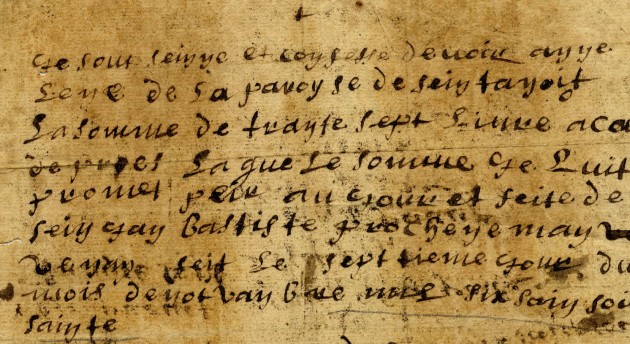 ge sout seinne et confesse devoir a nne
Lene de La paroysse de seintanoit
La somme de trante sept Livre a ca
de prres Laquele somme ge Luit
promet peir au gour et feite de
sein gan bastiste procheynemayn
venan feit Le septtieme gour du
mois denotvanbre mil six sain soi
sainte